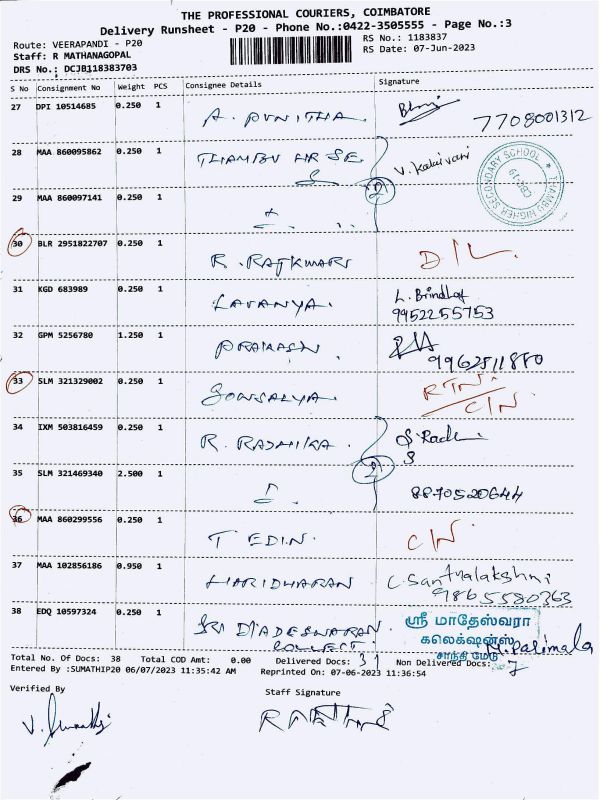 THE PROFESSIONAL COURIERS, COIMBATORE
Delivery Runsheet - P20 - Phone No.:0422-3505555 - Page No.:3
Route: VEERAPANDI - P20
RS No.: 1183837
Staff: R MATHANAGOPAL
RS Date: 07-Jun-2023
DRS No.: DCJB118383703
S No Consignment No Weight PCS Consignee Details Signature
27 DPI 10514685 0.250 1 A. PUNITHA 7708001312
28 MAA 860095862 0.250 1 THAMBU HR SE. V. Kalaivani
THAMBU HIGHER SECONDARY SCHOOL
CBE-19
29 MAA 860097141 0.250 1
30 BLR 2951822707 0.250 1 R. RAJKUMAR D/L.
31 KGD 683989 0.250 1 LAVANYA. L. Brindha
9952255753
32 GPM 5256780 1.250 1 PRAKASH
9962511880
33 SLM 321329002 0.250 1 GOWSALYA. RTN.
C/N.
34 IXM 503816459 0.250 1 R. RADHIKA.
35 SLM 321469340 2.500 1 8870520644
36 MAA 860299556 0.250 1 T EDIN. C/N.
37 MAA 102856186 0.950 1 HARIDHARAN C. Santhalakshmi
9865580363
38 EDQ 10597324 0.250 1 SRI MADESWARAN
ஸ்ரீ மாதேஸ்வரா
கலெக்ஷன்ஸ்
சாந்தி மேடு
M. Parimala
Total No. Of Docs: 38 Total COD Amt: 0.00 Delivered Docs: 31 Non Delivered Docs: 7
Entered By :SUMATHIP20 06/07/2023 11:35:42 AM Reprinted On: 07-06-2023 11:36:54
Verified By Staff Signature